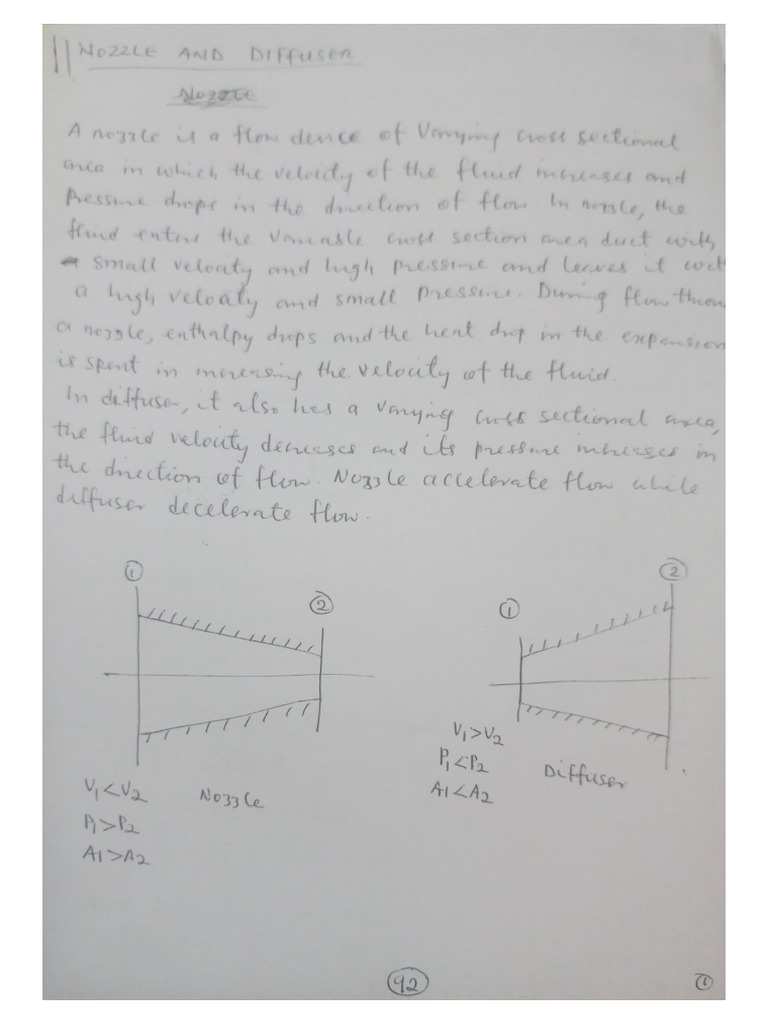 NOZZLE AND DIFFUSER
Nozzle
A nozzle is a flow device of varying cross sectional
area in which the velocity of the fluid increases and
Pressure drops in the direction of flow In nozzle, the
fluid enters the variable cross section area duct with
small velocity and high pressure and leaves it wit
a high velocity and small pressure. During flow throu
a nozzle, enthalpy drops and the heat drop in the expansion
is spent in increasing the velocity of the fluid.
In diffuser, it also has a varying cross sectional area,
the fluid velocity decreases and its pressure increases in
the direction of flow. Nozzle accelerate flow while
diffuser decelerate flow.
① ②
① ②
V1<V2 Nozzle
P1>P2
A1>A2
V1>V2
P1<P2 Diffuser
A1<A2
92
①